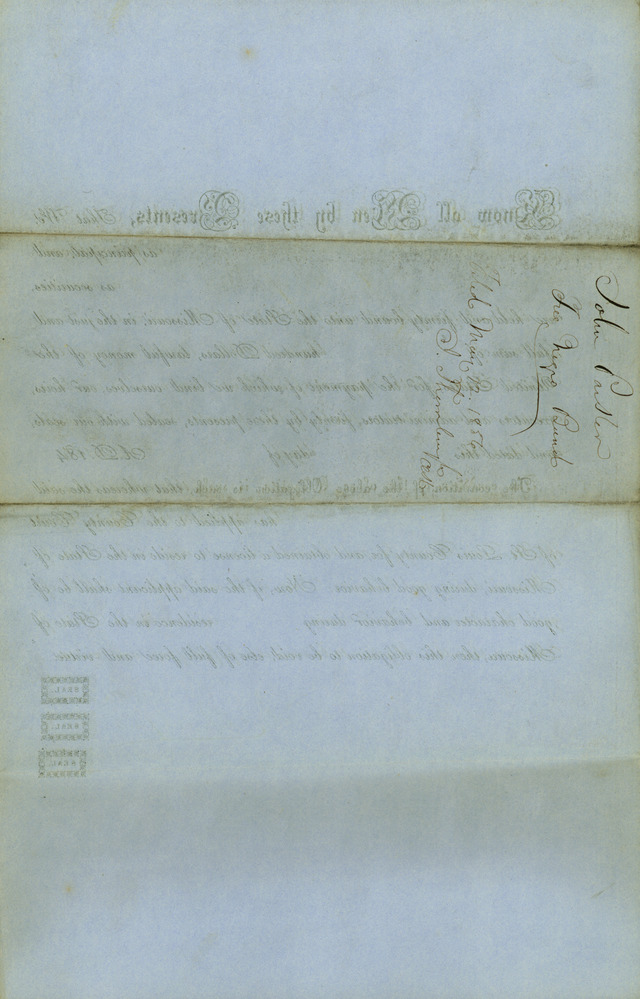 John Parker
Free Negro Bond
Filed May 1856
S.
Know all Men by these Presents, That We
as principal, and
as securities,
held and firmly bound unto the State of Missouri, in the just and
hundred Dollars, lawful money of the
for the payment of which we bind ourselves, our heirs,
and administrators, firmly by these presents, sealed with our seals
and dated this day of A.D. 184
The condition of the above Obligation is such, that whereas the said
has applied to the County Court
of St. Louis County for, and obtained a license to reside in the State of
Missouri, during good behavior. Now, if the said applicant shall be of
good character and behavior during residence in the State of
Missouri, then this obligation to be void, else of full force and virtue.
SEAL.
SEAL.
SEAL.